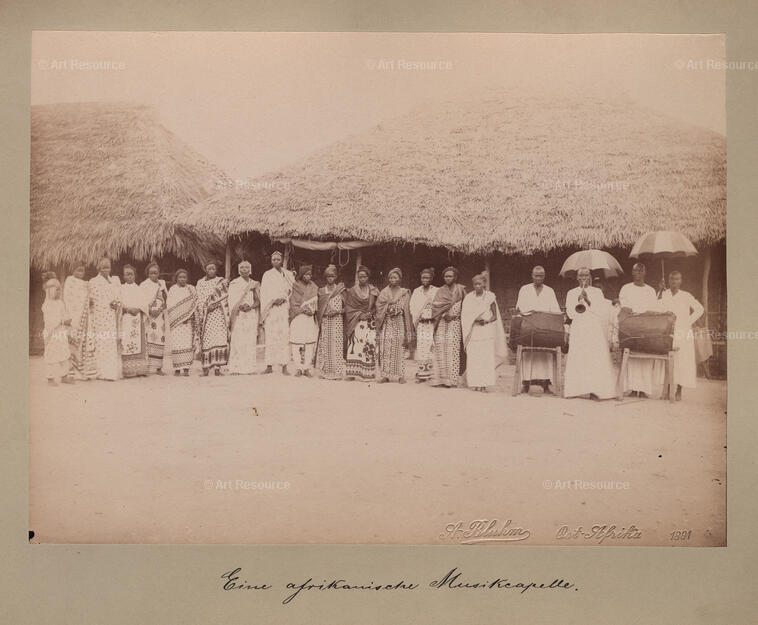 © Art Resource
© Art Resource
© Art Resource
© Art Resource
© Art Resource
© Art Resource
© Art Resource
© Art Resource
© Art Resource
© Art Resource
Ost-Afrika 1891
Eine afrikanische Musikcapelle.